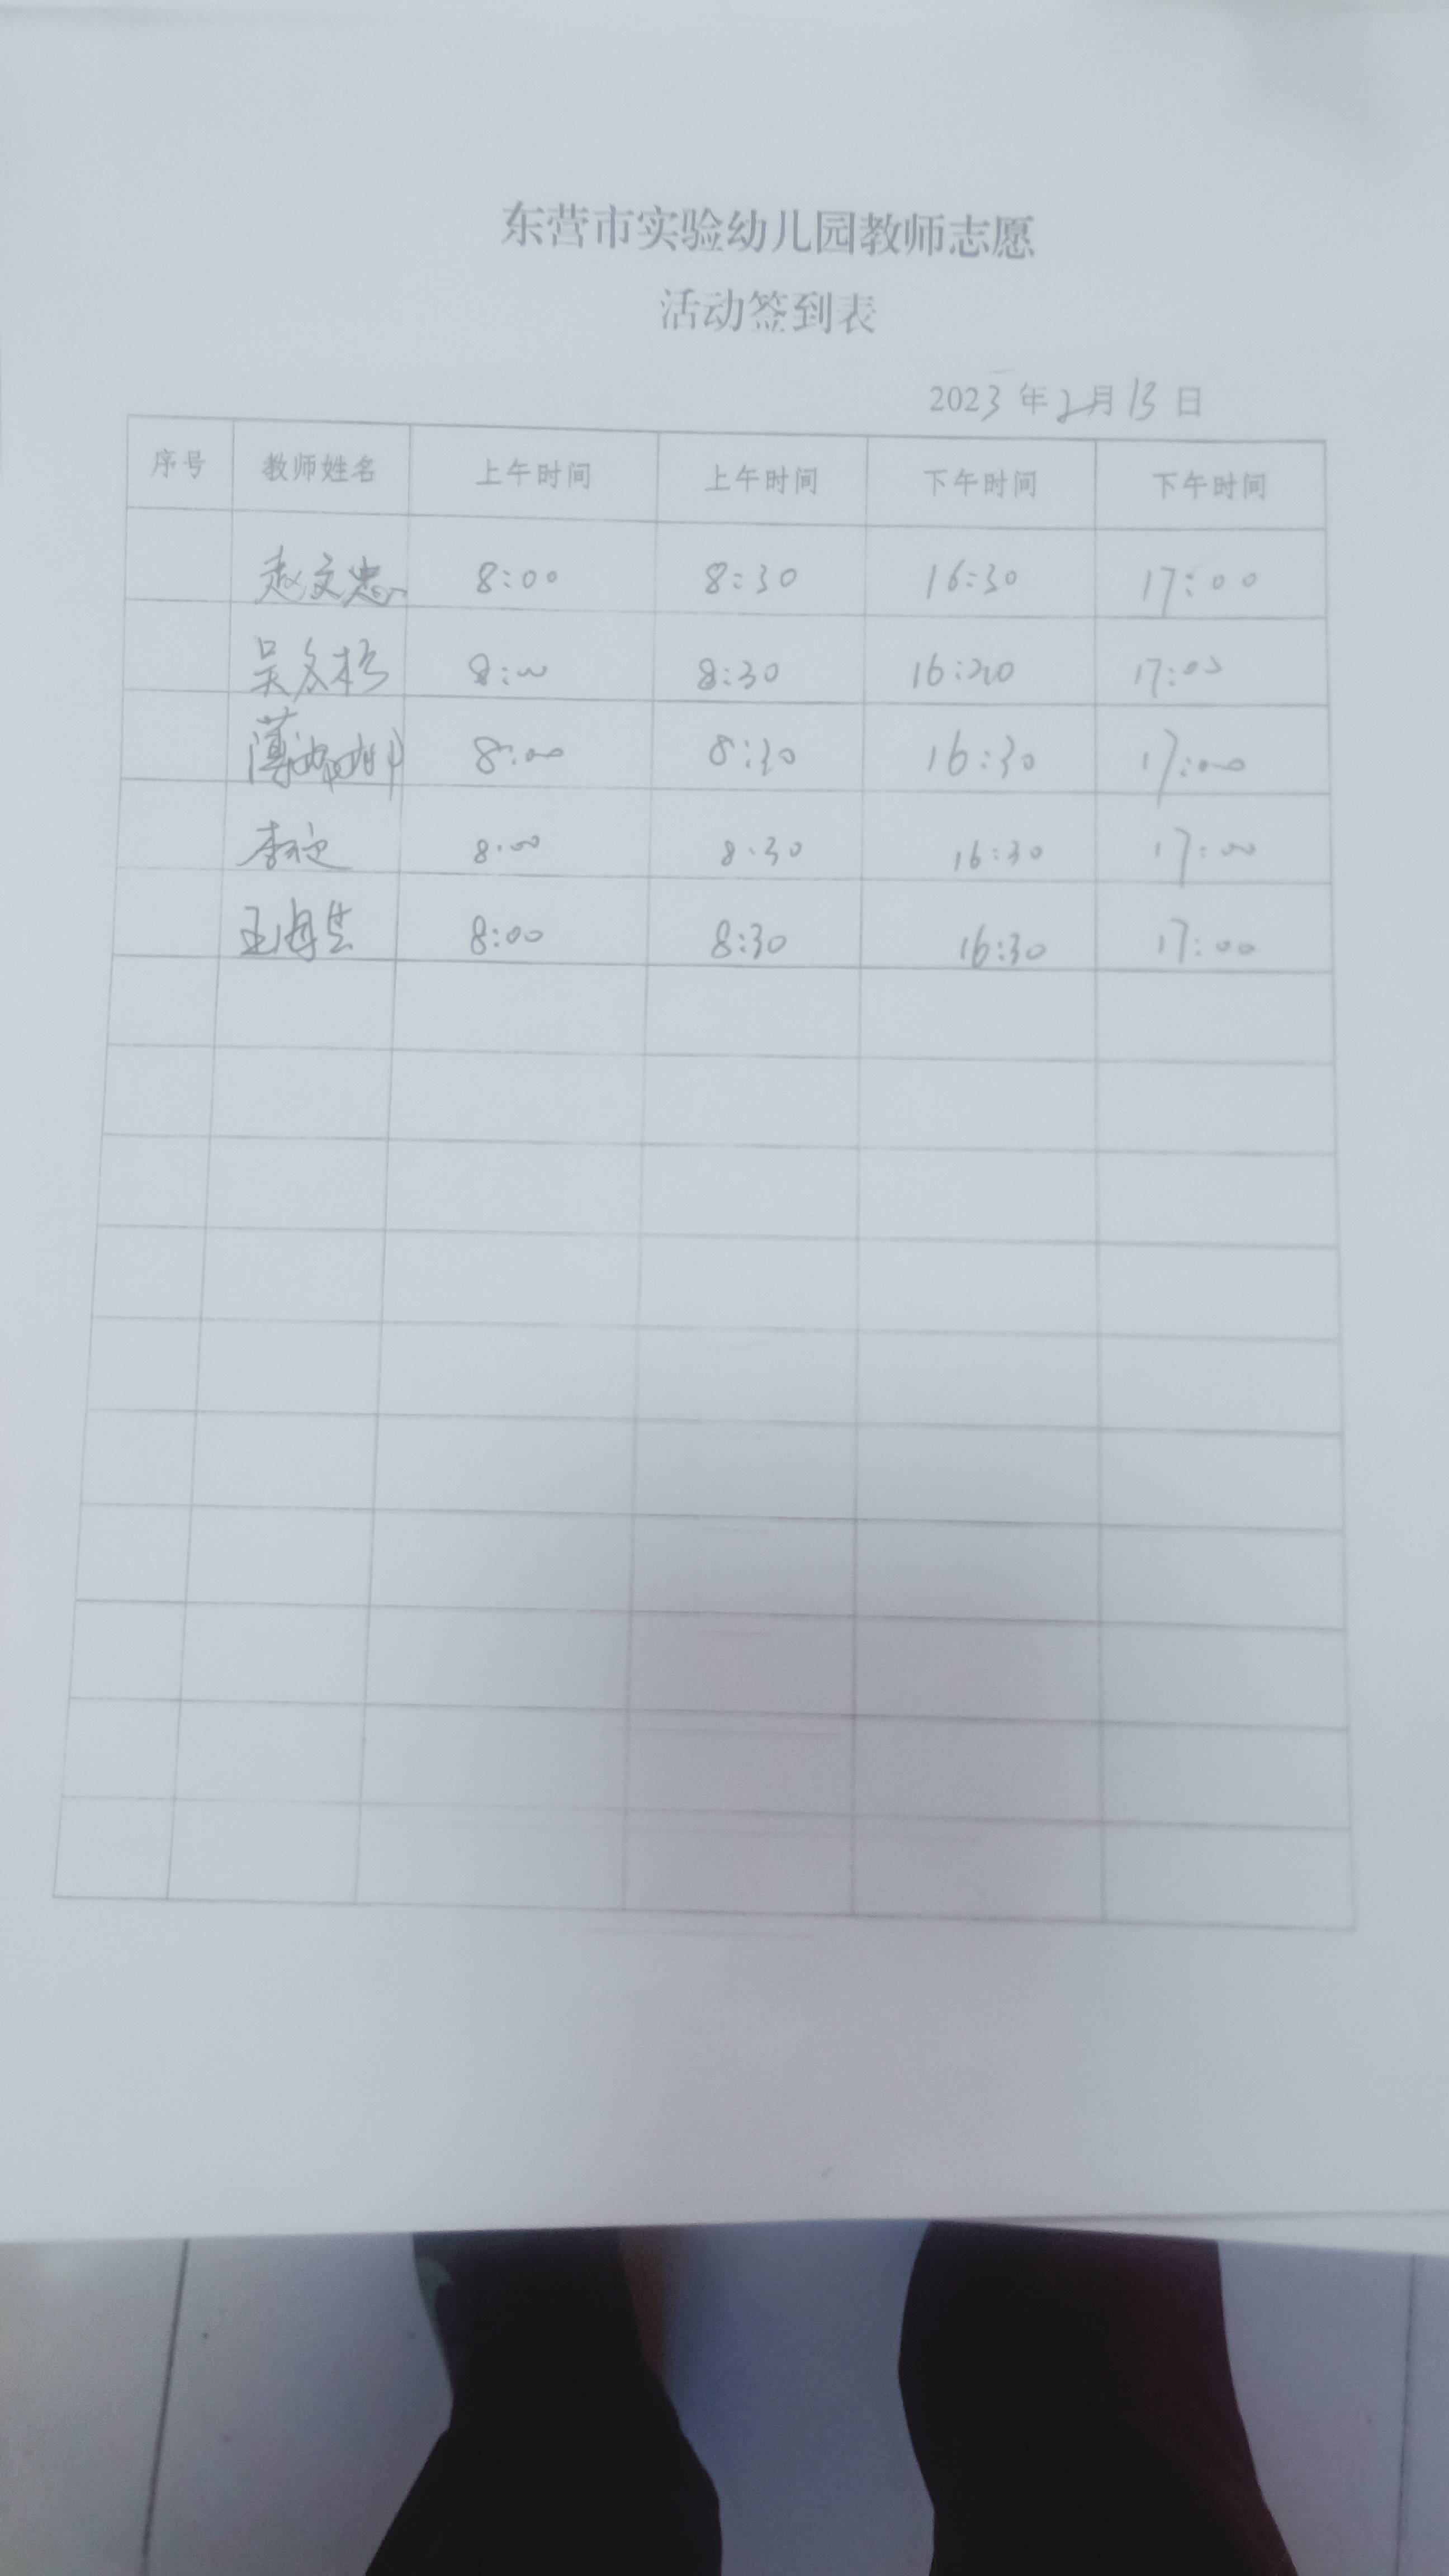 东营市实验幼儿园教师志愿
活动签到表
2023年2月13日
序号 教师姓名 上午时间 上午时间 下午时间 下午时间
赵文忠 8:00 8:30 16:30 17:00
吴 8:00 8:30 16:30 17:00
薄 8:00 8:30 16:30 17:00
李 8:00 8:30 16:30 17:00
王海 8:00 8:30 16:30 17:00